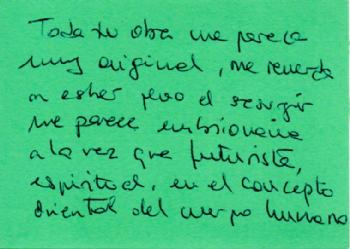 Toda tu obra me parece
muy original, me recuerda
a esher pero el
me parece embrionaria
a la vez que futurista,
espiritual, en el concepto
oriental del cuerpo humano